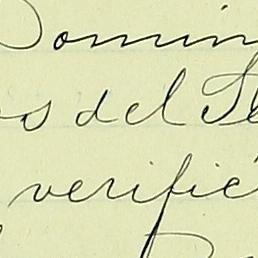 Domin
os del Se
verific